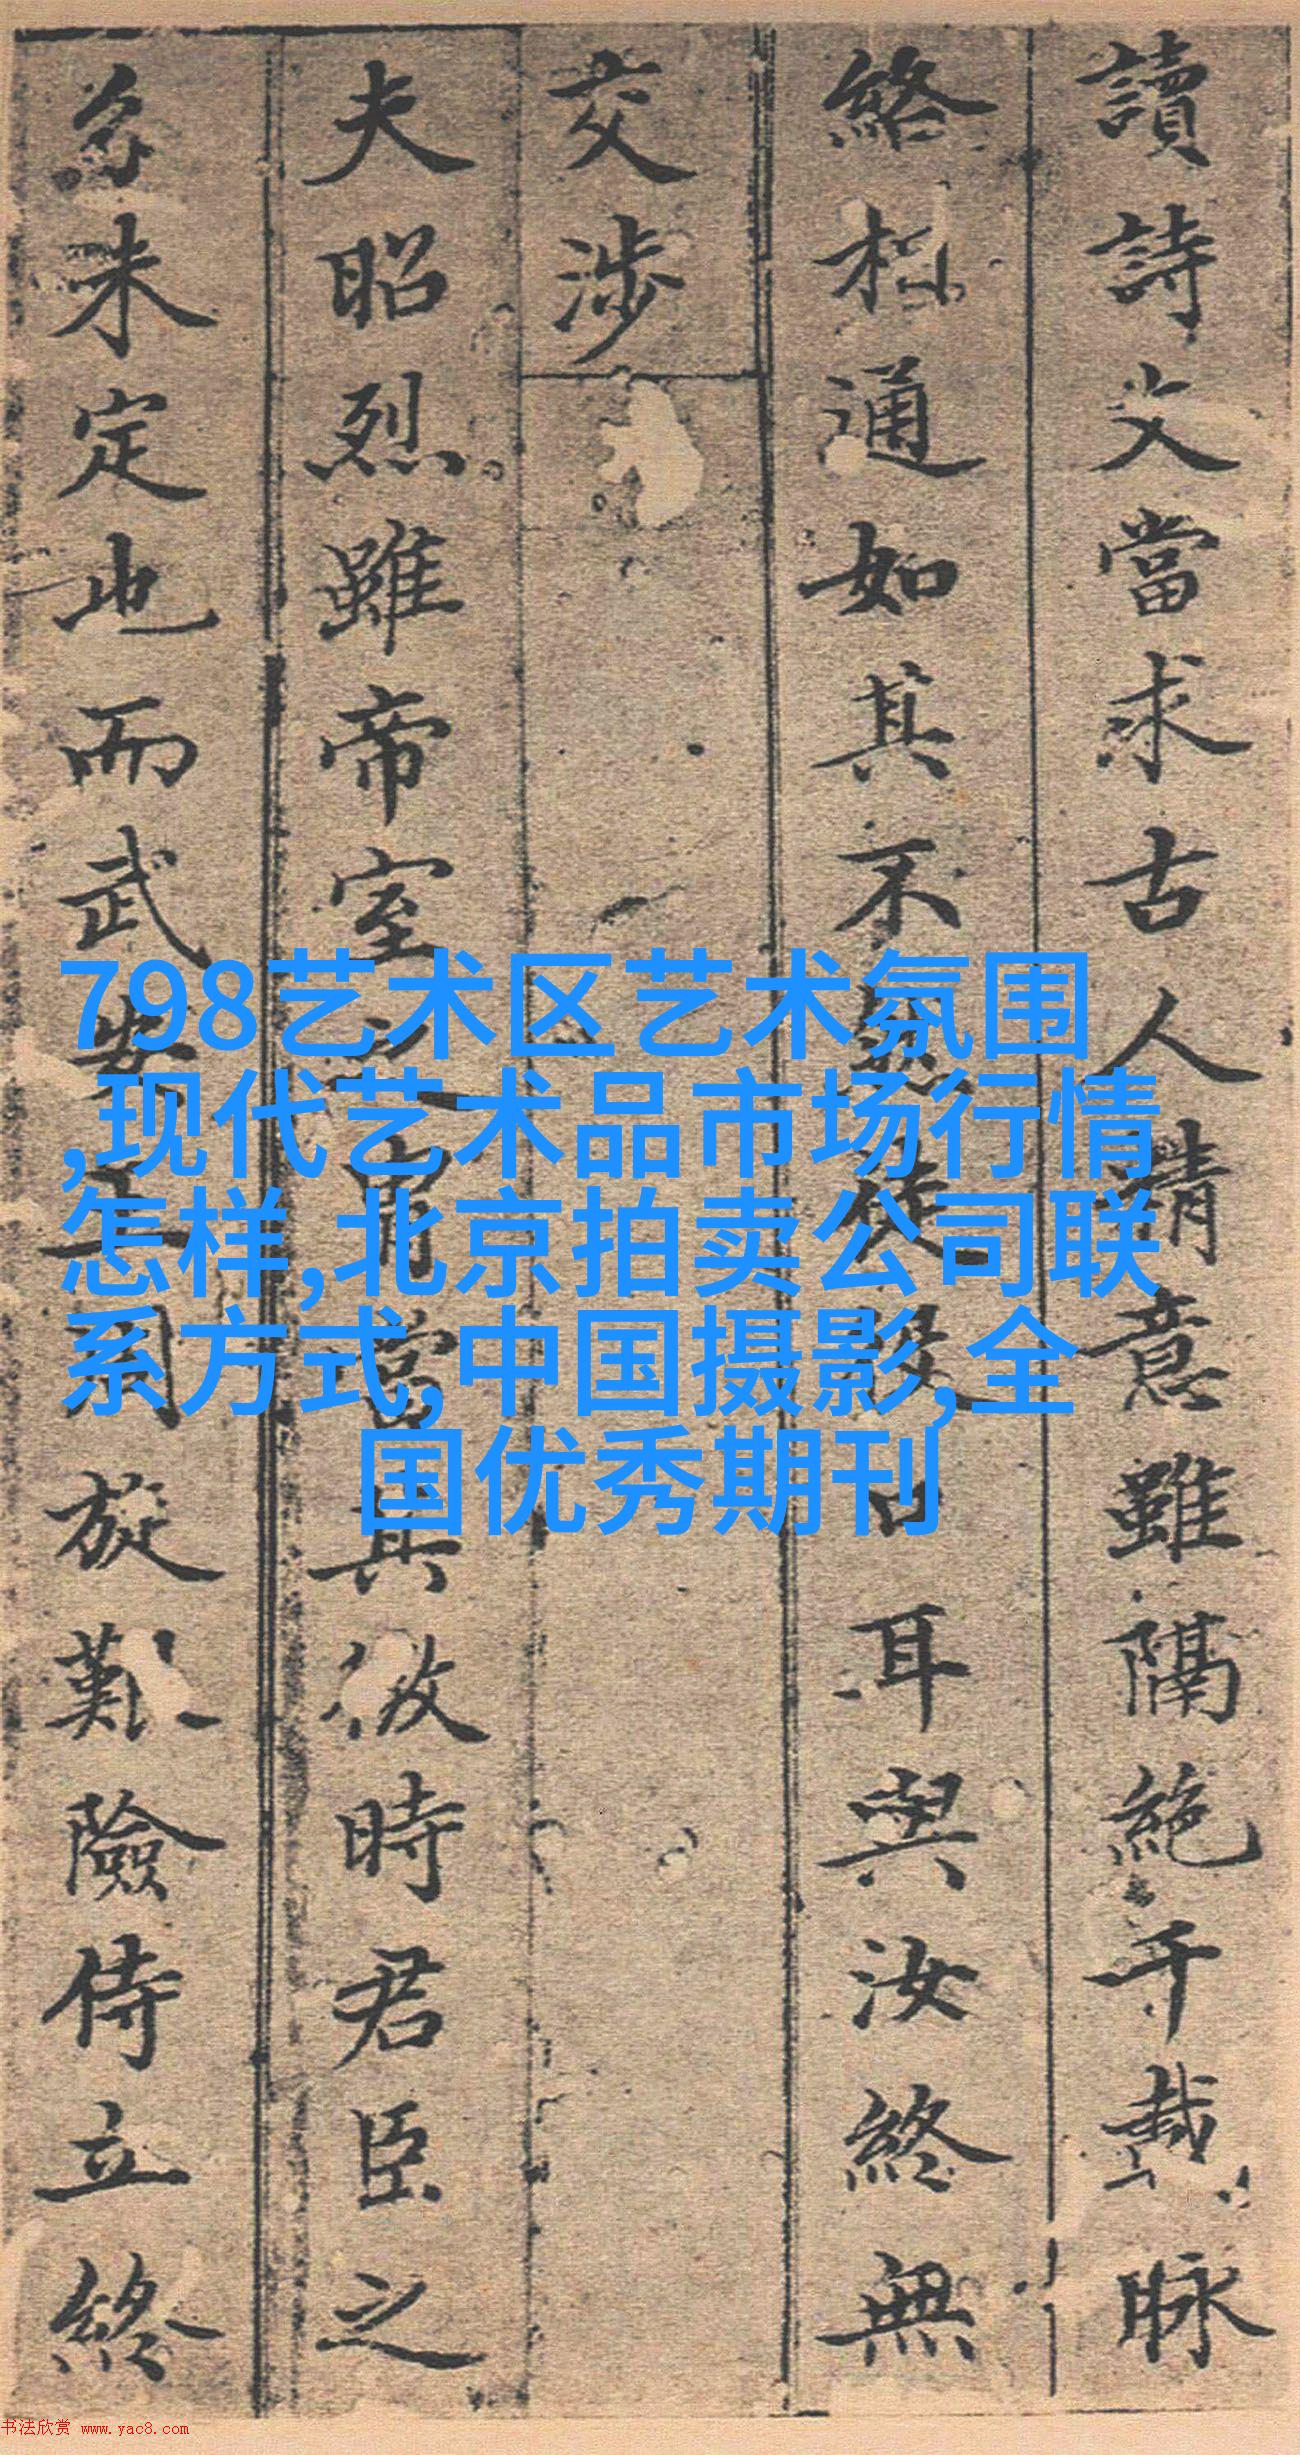 讀詩文當求古人精意雖隔絕千載脉
絡相通如其不然徒設口耳與汝終無
交涉
夫昭烈雖帝室之胄當其微時君臣之
分未定也而武安王周旋艱險侍立終
798艺术区艺术氛围
,现代艺术品市场行情
怎样,北京拍卖公司联
系方式,中国摄影,全
国优秀期刊
书法欣赏 www.yac8.com